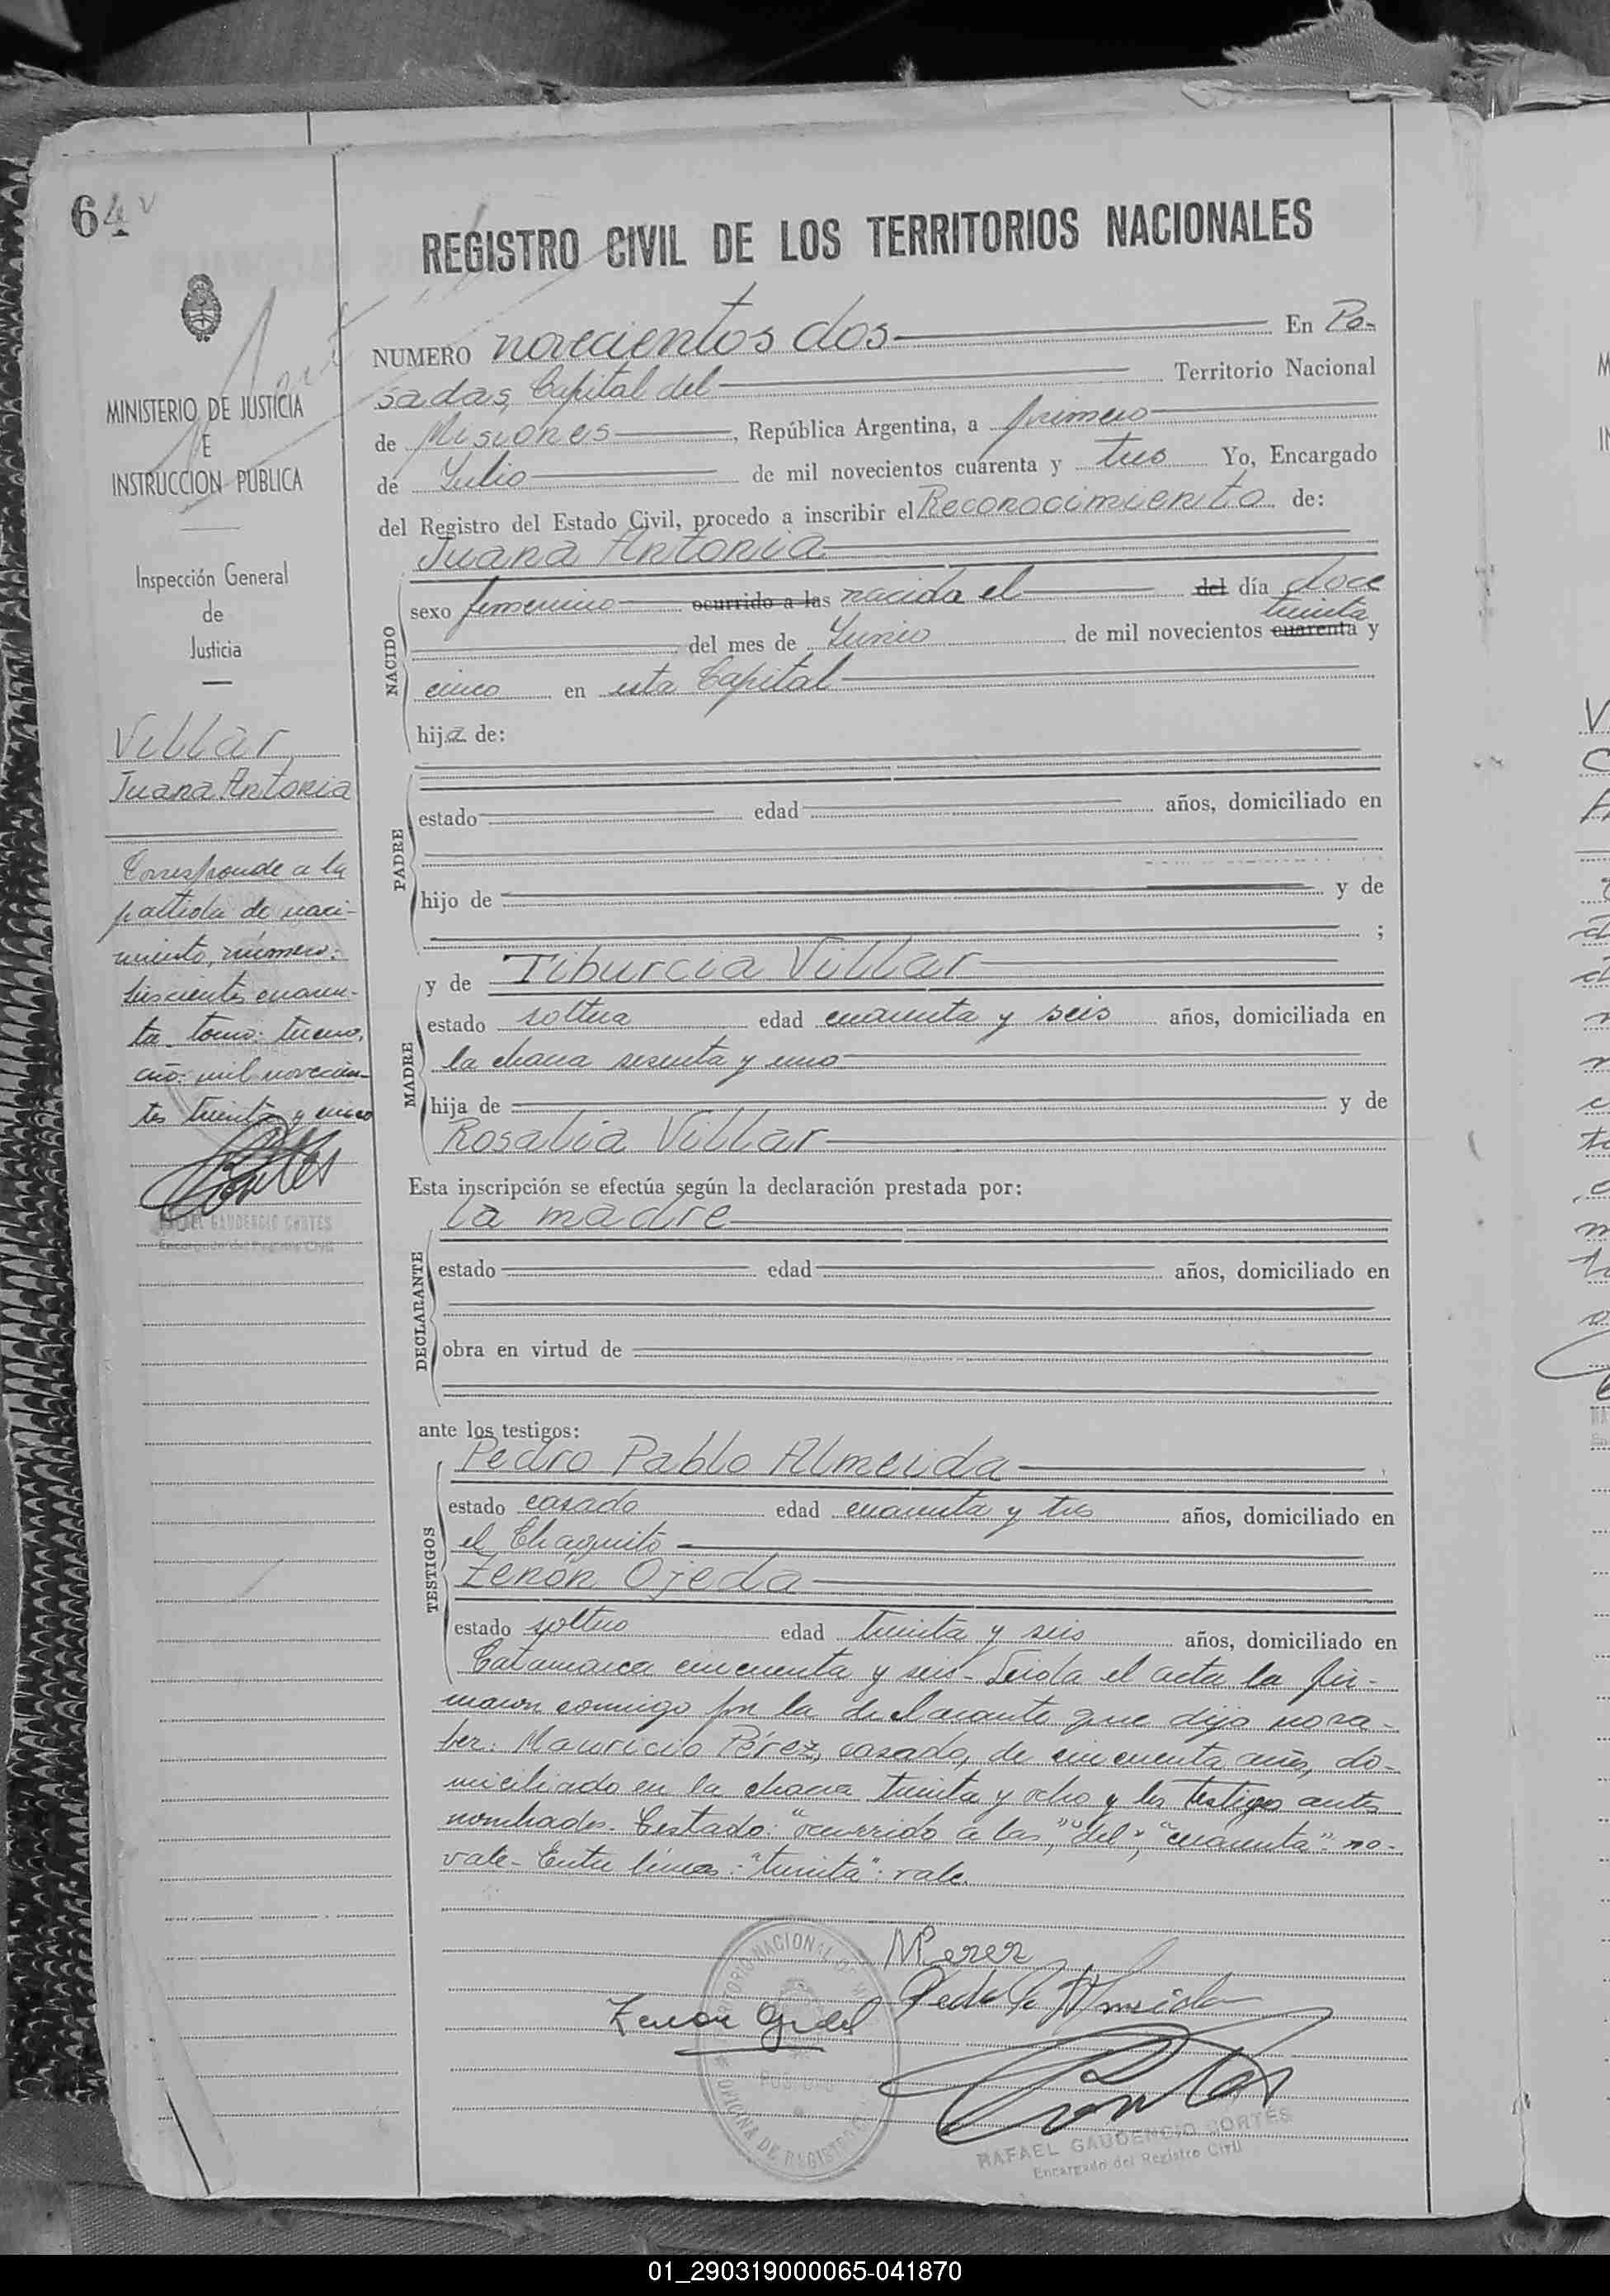 64 v
REGISTRO CIVIL DE LOS TERRITORIOS NACIONALES
MINISTERIO DE JUSTICIA
E
INSTRUCCION PUBLICA
Inspección General
de
Justicia
Villar
Juana Antonia
Corresponde a la
partida de naci-
miento, número:
cuaren-
ta tomo: tercero,
año: mil novecien-
tos treinta y cinco
Cortes
RAFAEL GAUDENCIO CORTES
Encargado del Registro Civil
NUMERO novecientos dos En Po-
sadas, Capital del Territorio Nacional
de Misiones, República Argentina, a primero
de Julio de mil novecientos cuarenta y tres Yo, Encargado
del Registro del Estado Civil, procedo a inscribir el Reconocimiento de:
Juana Antonia
NACIDO
sexo femenino ocurrido a las nacida el del día doce
treinta
del mes de Junio de mil novecientos cuarenta y
cinco en esta Capital
hija de:
PADRE
estado edad años, domiciliado en
hijo de y de
;
y de Tiburcia Villar
MADRE
estado soltera edad cuarenta y seis años, domiciliada en
la chacra sesenta y uno
hija de y de
Rosalia Villar
Esta inscripción se efectúa según la declaración prestada por:
la madre
DECLARANTE
estado edad años, domiciliado en
obra en virtud de
ante los testigos:
Pedro Pablo Almeida
TESTIGOS
estado casado edad cuarenta y tres años, domiciliado en
el Chaquito
Zenón Ojeda
estado soltero edad treinta y seis años, domiciliado en
Catamarca cincuenta y seis- Leida el acta la fir-
maron conmigo por la declarante que dijo no sa-
ber: Mauricio Pérez, casado, de cincuenta años, do-
miciliado en la chacra treinta y ocho y los testigos antes
nombrados. Testado: "ocurrido a las", "del", "cuarenta": no-
vale- Entre líneas: "treinta": vale.
MPerez
Pedro P Almeida
Zenon Ojeda
Cortes
OFICINA DE REGISTRO CIVIL
RAFAEL GAUDENCIO CORTES
Encargado del Registro Civil
01_290319000065-041870